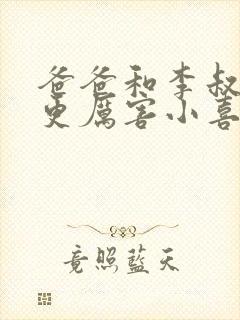 爸爸和李叔
更厲害小喜
竟照藍天